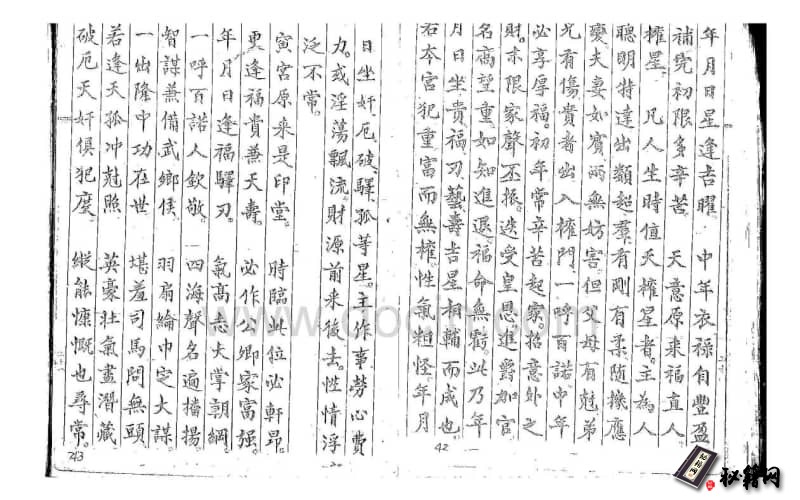 年月日星逢吉曜。 中年衣祿自豐盈
補完初限多辛苦。 天意原來福直人
權星 凡人生時值天權星者。主為人
聰明特達出類超羣。有剛有柔随機應
變夫妻如賓。兩無妨害。但父母有尅弟
兄有傷貴者出入權門。一呼百諾中年
必享厚福。初年常辛苦起家。招意外之
財。末限家聲丕振。迭受皇恩進爵加官
名高望重。如知進退。福命無虧。此乃年
月日坐貴福。刃藝壽吉星相輔而成也。
若本宮犯重富而無權。性氣粗怪年月
42
日坐奸厄。破。驛。孤等星。主作事勞心費
力。或淫蕩飄流。財源前來後去。性情浮
泛不常。
寅宮原來是印堂。 時臨此位必軒昂。
更逢福貴兼天壽。 必作公卿家富强。
年月日逢福驛刃。 氣高志大掌朝綱。
一呼百諾人欽敬。 四海聲名遍播揚。
智謀兼備武鄉侯。 羽扇綸巾定大謀。
一出隆中功在世 堪羞司馬問無頭
若逢天孤冲尅照 英豪壯氣盡潛藏
破厄天奸俱犯度。 縱能慷慨也尋常。
243
www.docin.com
秘籍网